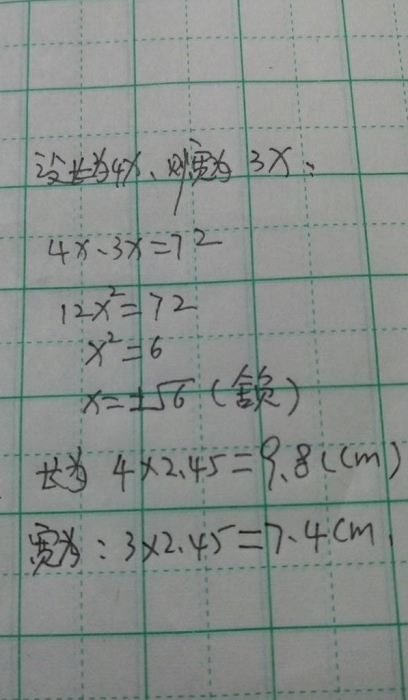 设长为4x、则宽为 3x：
4x·3x=72
12x²=72
x²=6
x=±√6 (舍负)
长为 4×2.45=9.8(cm)
宽为：3×2.45=7.4cm.